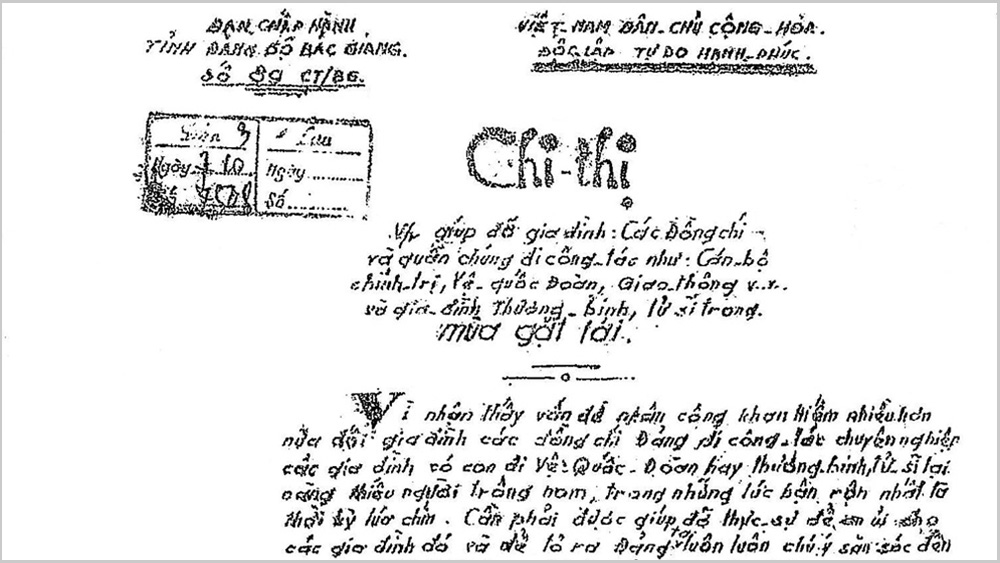 BAN CHẤP HÀNH
TỈNH ĐẢNG BỘ BẮC GIANG.
SỐ 89 CT/BG.
VIỆT-NAM DÂN-CHỦ CỘNG-HÒA.
ĐỘC LẬP TỰ DO HẠNH-PHÚC.
Ngày 7 10
Lưu
Ngày
Số
Chỉ-thị
V/v giúp đỡ gia đình: Các Đồng chí
và quần chúng đi công-tác như: Cán-bộ
chính-trị, Vệ-quốc Đoàn, Giao-thông v.v..
và gia-đình Thương-binh, tử sĩ trong.
mùa gặt tới.
Vì nhận thấy vấn đề nhân công khan hiếm nhiều hơn
nữa đối gia đình các đồng chí Đảng đi công-tác chuyên nghiệp
các gia đình có con đi Vệ-Quốc-Đoàn hay thương-binh, tử-sĩ lại
càng thiếu người trông nom, trong những lúc bận rộn nhất là
thời kỳ lúa chín. Cần phải được giúp đỡ thực-sự để an ủi cho
các gia đình đó và để tỏ ra Đảng ta luôn luôn chú ý săn sóc đến